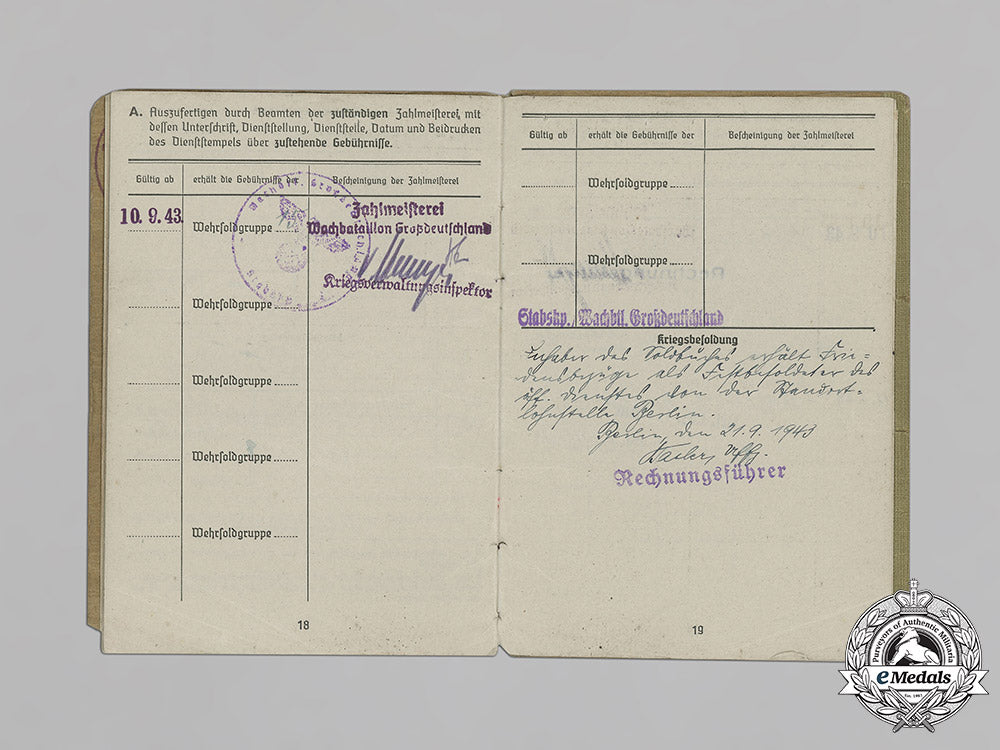 A. Auszufertigen durch Beamten der zuständigen Zahlmeisterei, mit
dessen Unterschrift, Dienststellung, Dienststelle, Datum und Beidrucken
des Dienststempels über zustehende Gebührnisse.
Gültig ab erhält die Gebührnisse der Bescheinigung der Zahlmeisterei
10. 9. 43.
Wehrsoldgruppe
Zahlmeisterei
Wachbataillon Großdeutschland
Kriegsverwaltungsinspektor
Wehrsoldgruppe
Wehrsoldgruppe
Wehrsoldgruppe
Wehrsoldgruppe
18
Gültig ab erhält die Gebührnisse der Bescheinigung der Zahlmeisterei
Wehrsoldgruppe
Wehrsoldgruppe
Stabskp. Wachbtl. Großdeutschland
Kriegsbesoldung
Inhaber des Soldbuches erhält Frie-
densbezüge als Festbesoldeter des
öff. Dienstes von der Standort-
lohnstelle Berlin.
Berlin, den 21.9.1943
Uffz.
Rechnungsführer
19
Purveyors of Authentic Militaria
eMedals